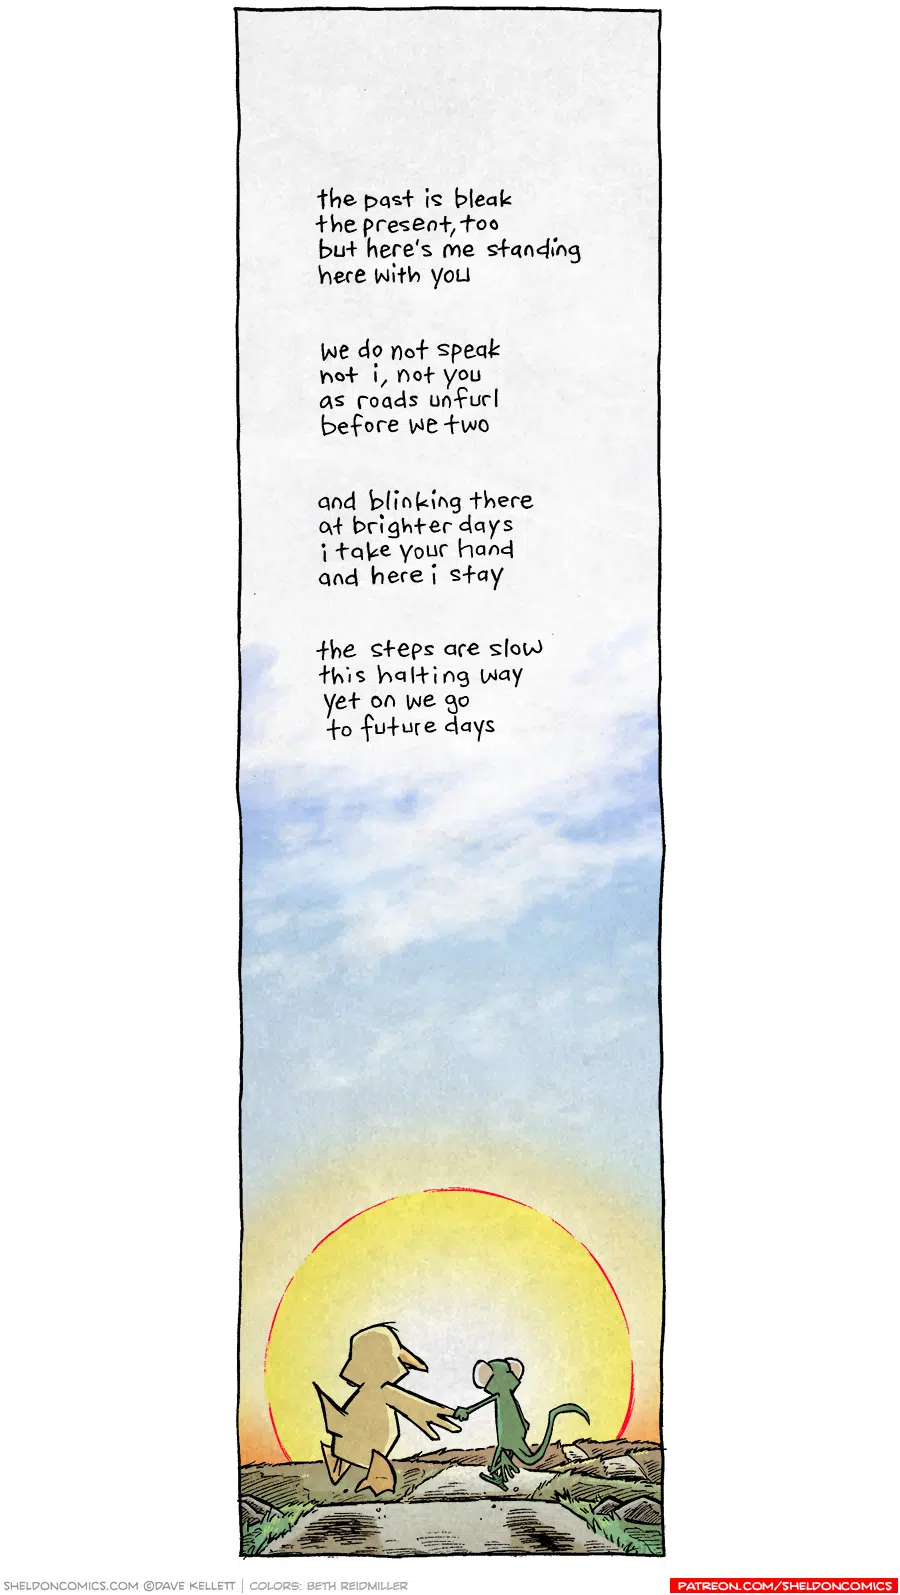 the past is bleak
the present, too
but here's me standing
here with you
we do not speak
not i, not you
as roads unfurl
before we two
and blinking there
at brighter days
i take your hand
and here i stay
the steps are slow
this halting way
yet on we go
to future days
SHELDONCOMICS.COM ©DAVE KELLETT | COLORS: BETH REIDMILLER
PATREON.COM/SHELDONCOMICS